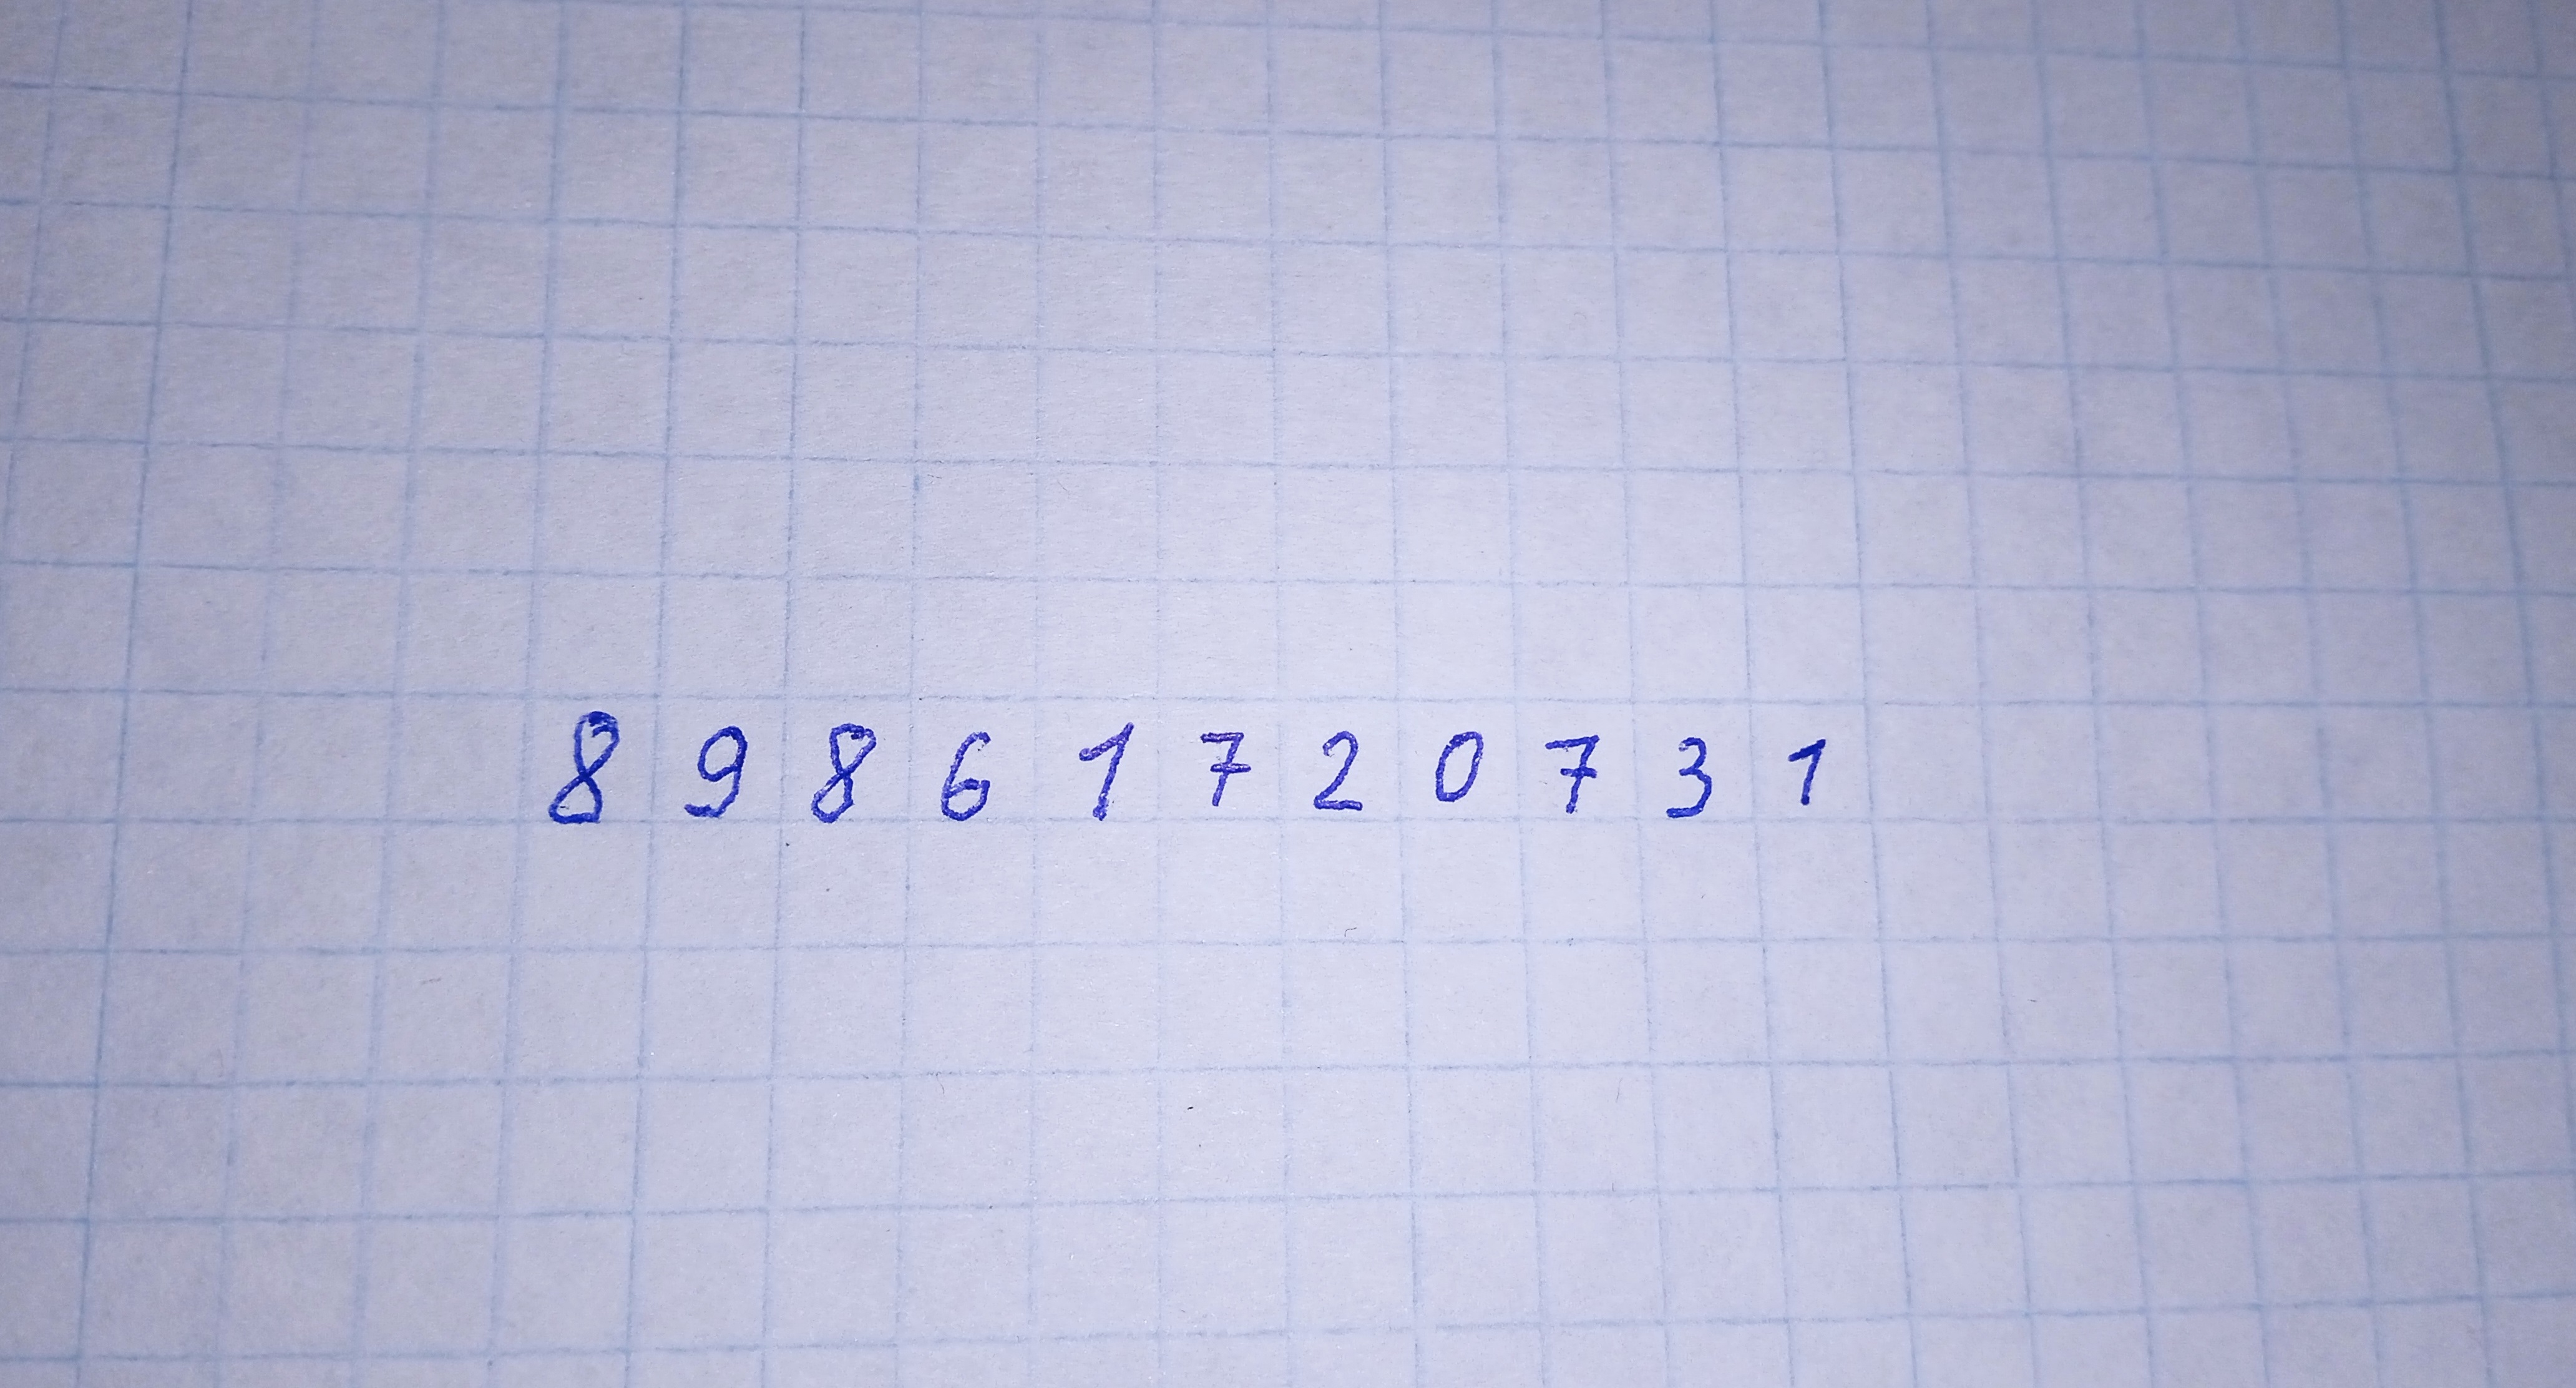 8 9 8 6 1 7 2 0 7 3 1